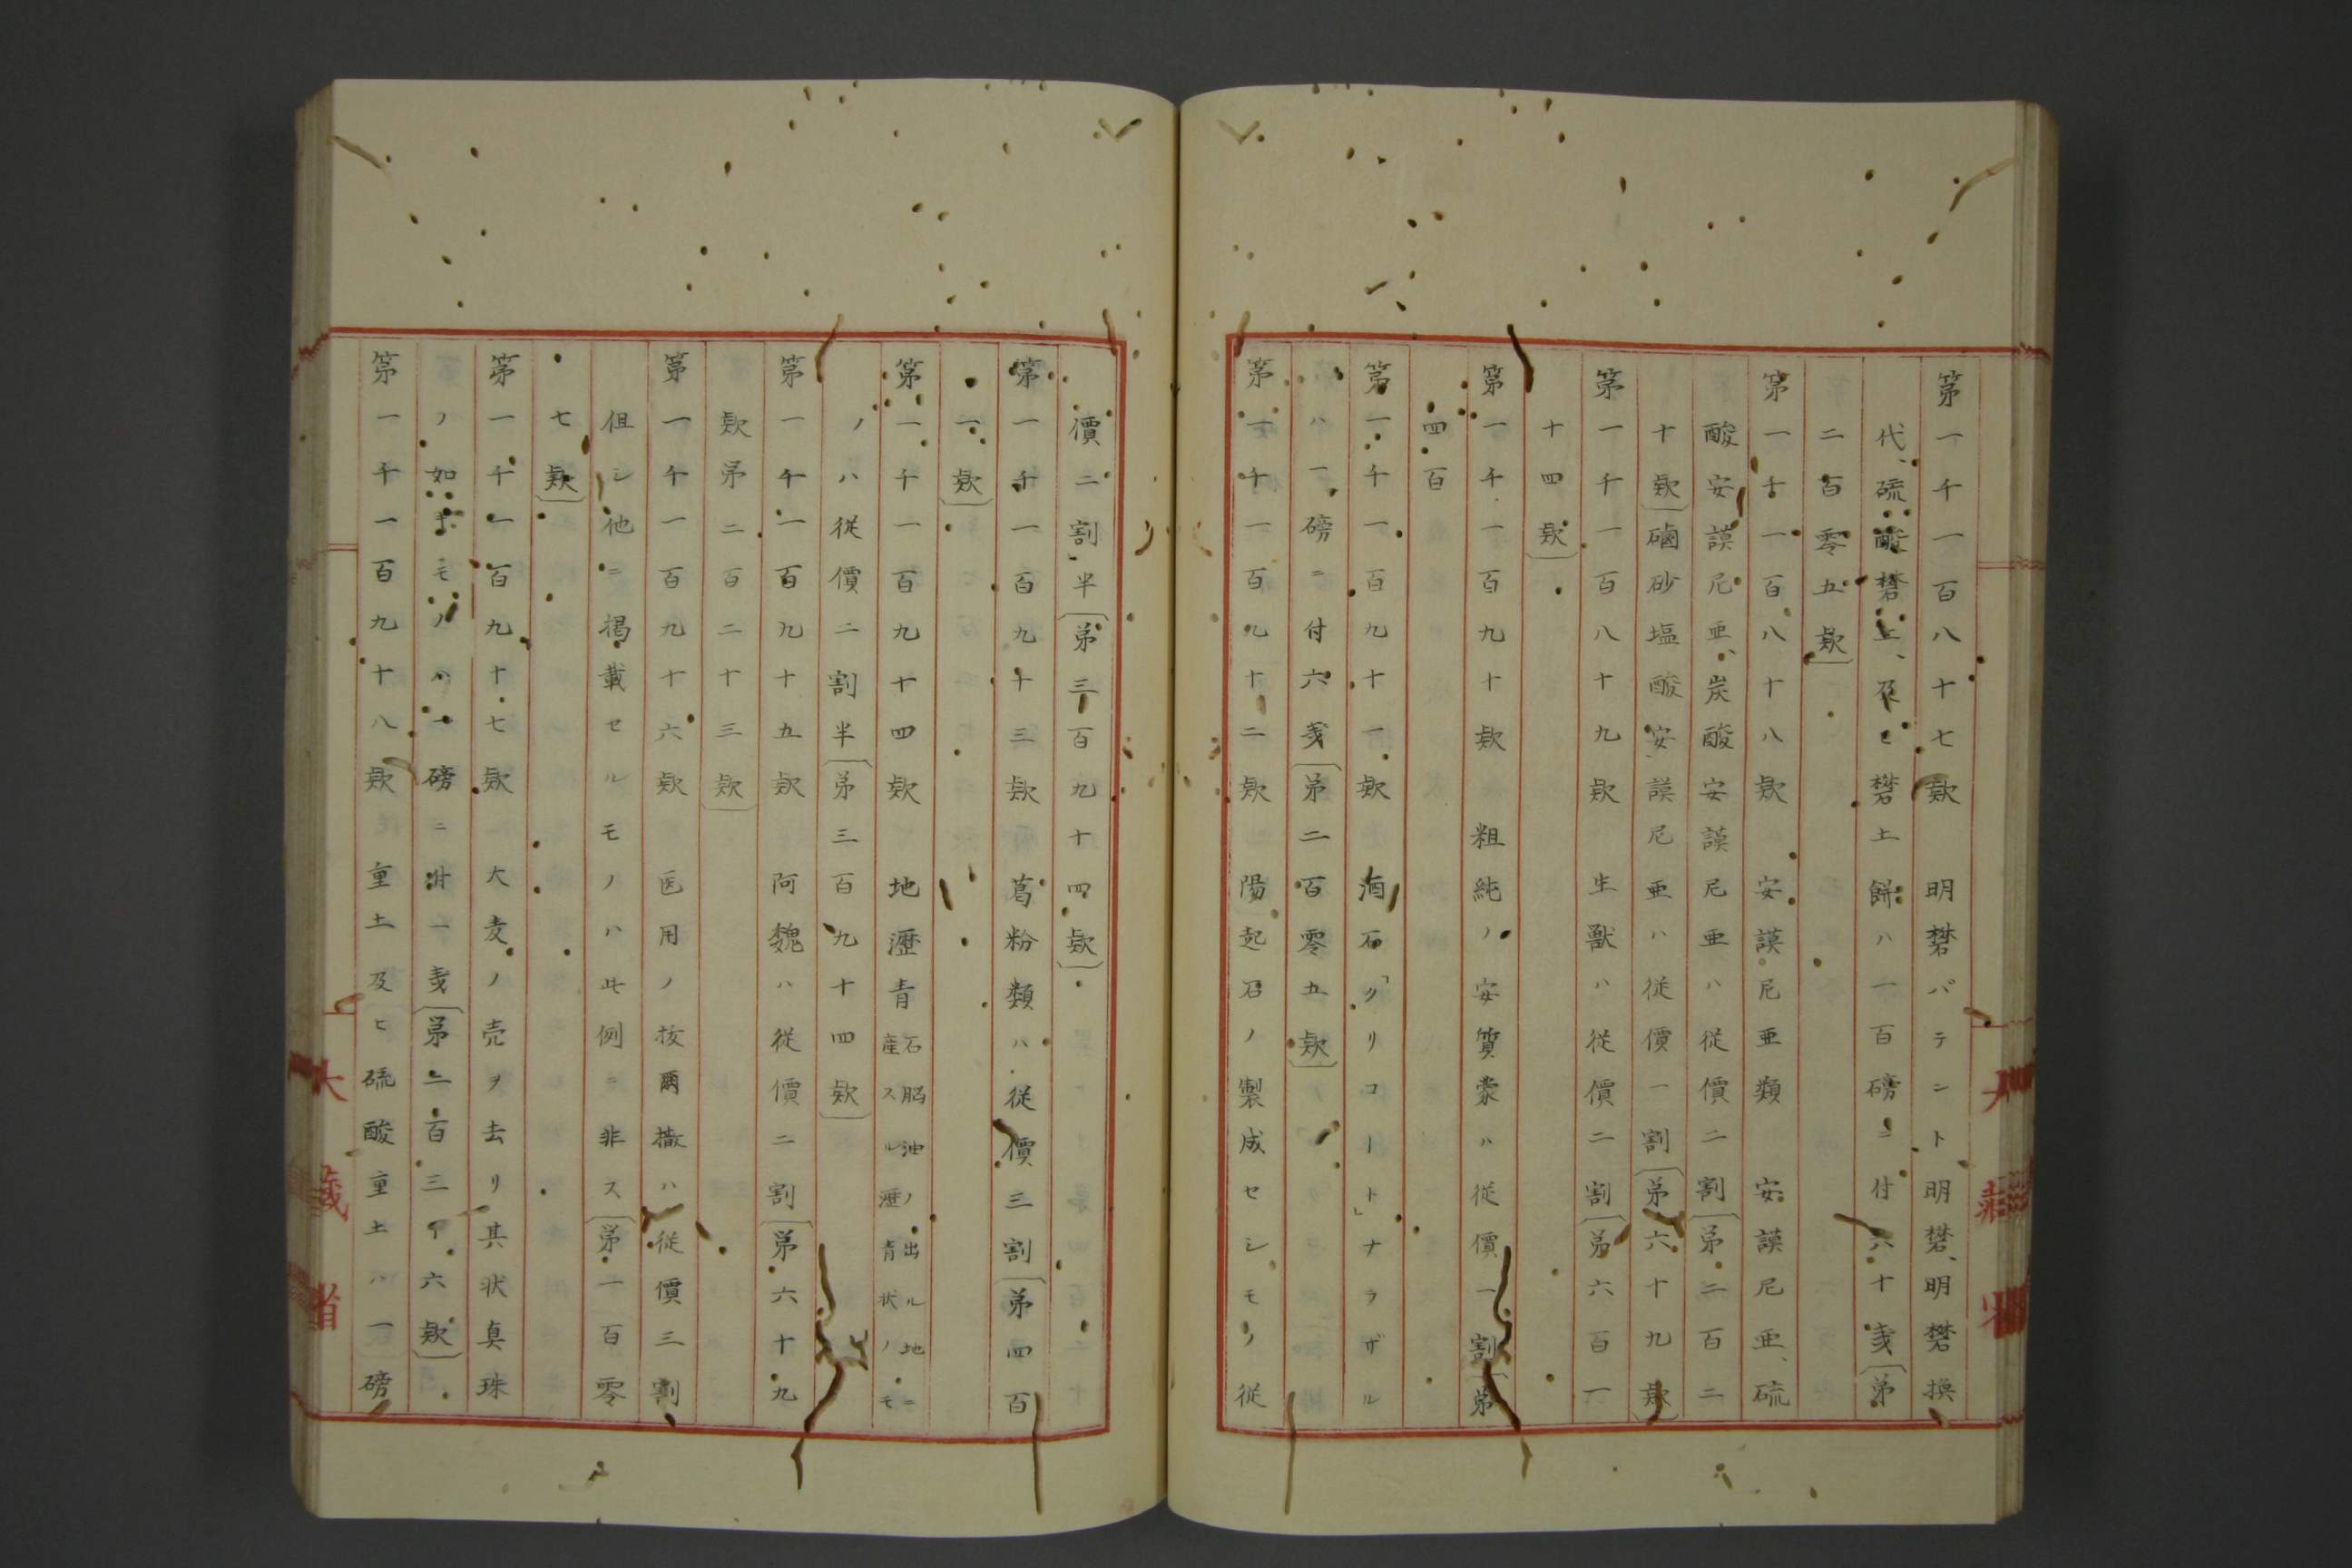 第一千一百八十七欵　明礬パテント明礬、明礬換
代、硫酸礬土、及ヒ礬土餅ハ一百磅ニ付六十戔〔第
二百零五欵〕
第一千一百八十八欵　安謨尼亜類　安謨尼亜、硫
酸安謨尼亜、炭酸安謨尼亜ハ従價二割〔第二百二
十欵〕磠砂塩酸安謨尼亜ハ従價一割〔第六十九欵〕
第一千一百八十九欵　生獣ハ従價二割〔第六百一
十四欵〕
第一千一百九十欵　粗純ノ安質蒙ハ従價一割〔第
四百
第一千一百九十一欵　酒石「クリコート」ナラザル
ハ一磅ニ付六戔〔第二百零五欵〕
第一千一百九十二欵　陽起石ノ製成セシモノ従
價二割半〔第三百九十四欵〕
第一千一百九十三欵　葛粉類ハ従價三割〔第四百
一欵〕
第一千一百九十四欵　地瀝青石脳油ノ出ル地ニ産スル瀝青状ノモ
ノハ従價二割半〔第三百九十四欵〕
第一千一百九十五欵　阿魏ハ従價二割〔第六十九
欵第二百二十三欵〕
第一千一百九十六欵　医用ノ抜爾撒ハ従價三割
但シ他ニ掲載セルモノハ此例ニ非ス〔第一百零
七欵〕
第一千一百九十七欵　大麦ノ売ヲ去リ其状真珠
ノ如キモノハ一磅ニ付一戔〔第二百三十六欵〕
第一千一百九十八欵　重土及ヒ硫酸重土ハ一磅
大蔵省